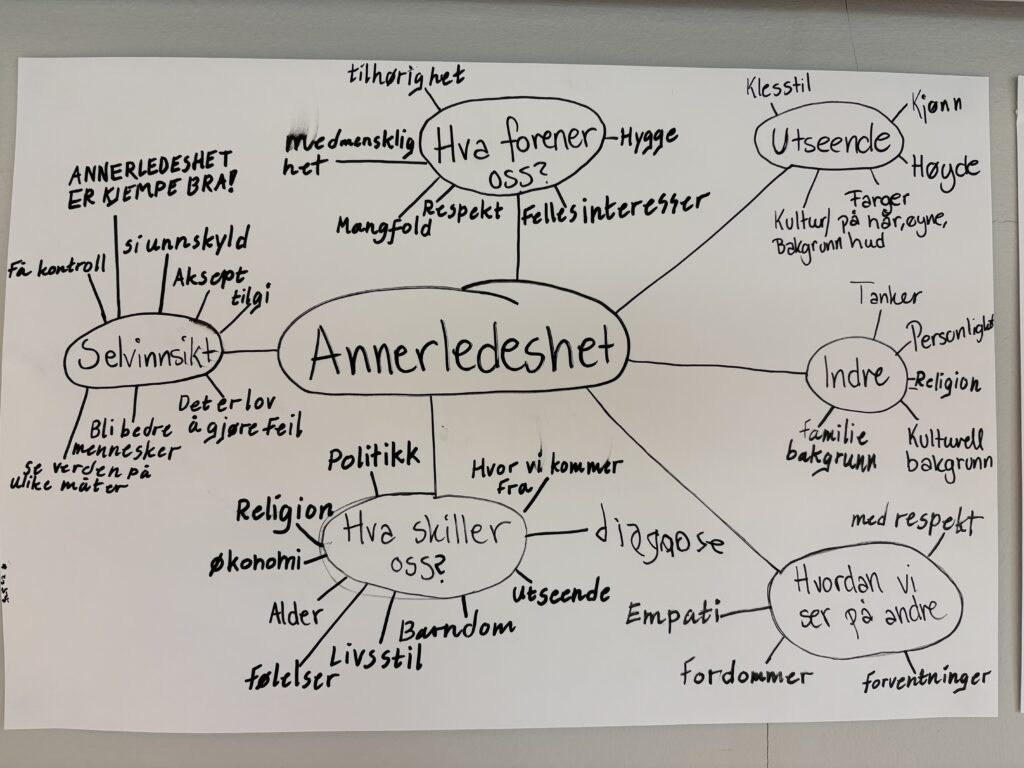 Annerledeshet
Hva forener
oss?
tilhørighet
Medmensklig
het
Mangfold
Respekt
Fellesinteresser
Hygge
Utseende
Klesstil
Kjønn
Høyde
Farger
på hår, øyne,
hud
Kultur/
Bakgrunn
Indre
Tanker
Personlighet
Religion
Kulturell
bakgrunn
familie
bakgrunn
Hvordan vi
ser på andre
med respekt
Empati
fordommer
forventninger
Hva skiller
oss?
Politikk
Hvor vi kommer
fra
Religion
diagnose
økonomi
utseende
Alder
Barndom
Livsstil
følelser
Selvinnsikt
ANNERLEDESHET
ER KJEMPE BRA!
Få kontroll
si unnskyld
Aksept
tilgi
Det er lov
å gjøre feil
Bli bedre
mennesker
se verden på
ulike måter